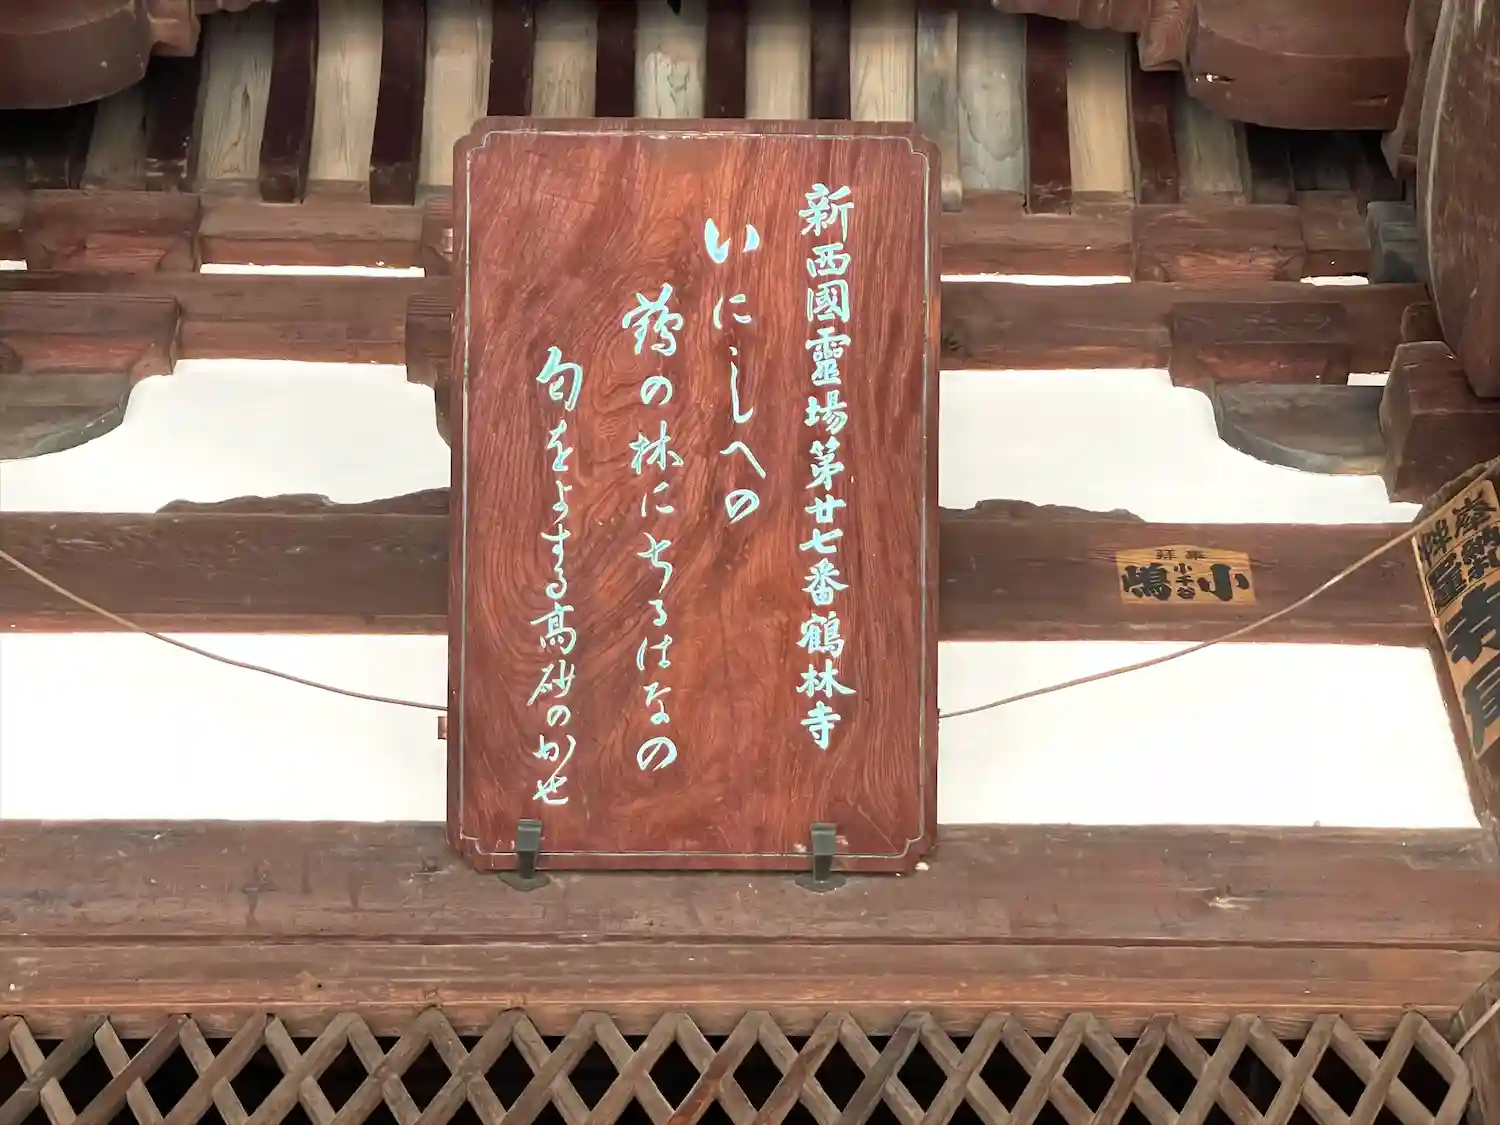 新西國靈場第廿七番鶴林寺
いにしへの
鶴の林にちるはなの
匂をよする高砂のかせ
奉拝
小千谷
小嶋